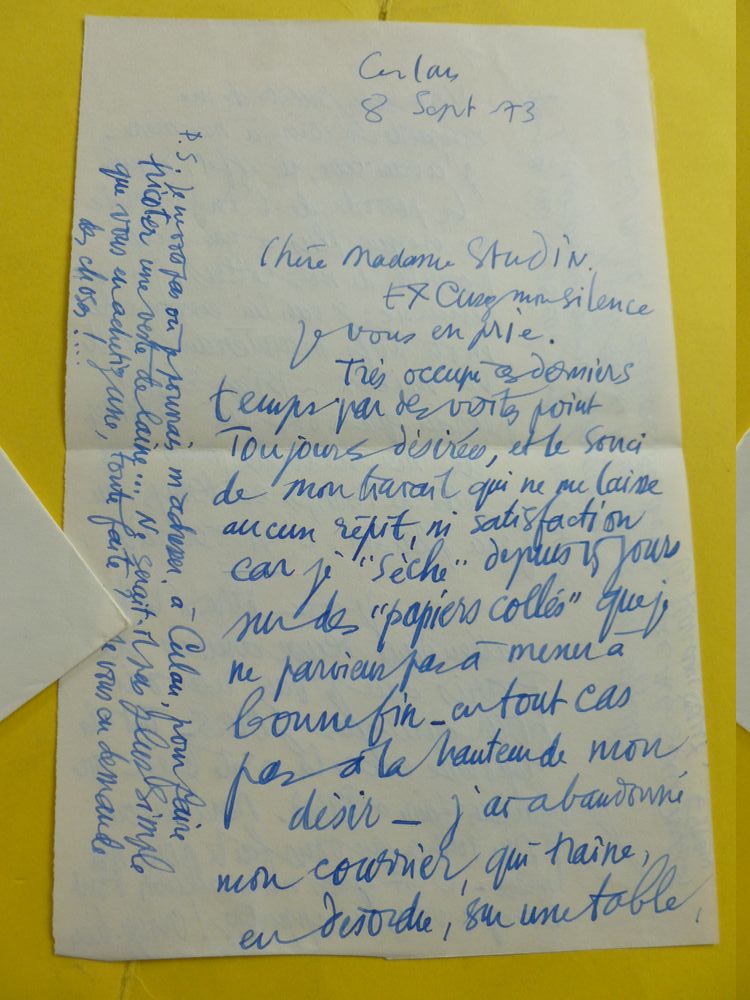 Culan
8 Sept 73
Chère Madame STUDIN.
EXCusez mon silence
je vous en prie.
Très occupé ces derniers
temps par des visites point
Toujours désirées, et le souci
de mon travail qui ne me laisse
aucun répit, ni satisfaction
car je "sèche" depuis 15 jours
sur des "papiers collés" que je
ne parviens pas à mener à
bonne fin - en tout cas
pas à la hauteur de mon
désir - j'ai abandonné
mon courrier, qui traîne,
en désordre, sur une table,
P.S. Je ne vois pas où je pourrais m'adresser, à Culan, pour faire
tricoter une veste de laine... Ne serait-il pas plus simple
que vous en achetiez une, toute faite je vous en demande
des choses!...